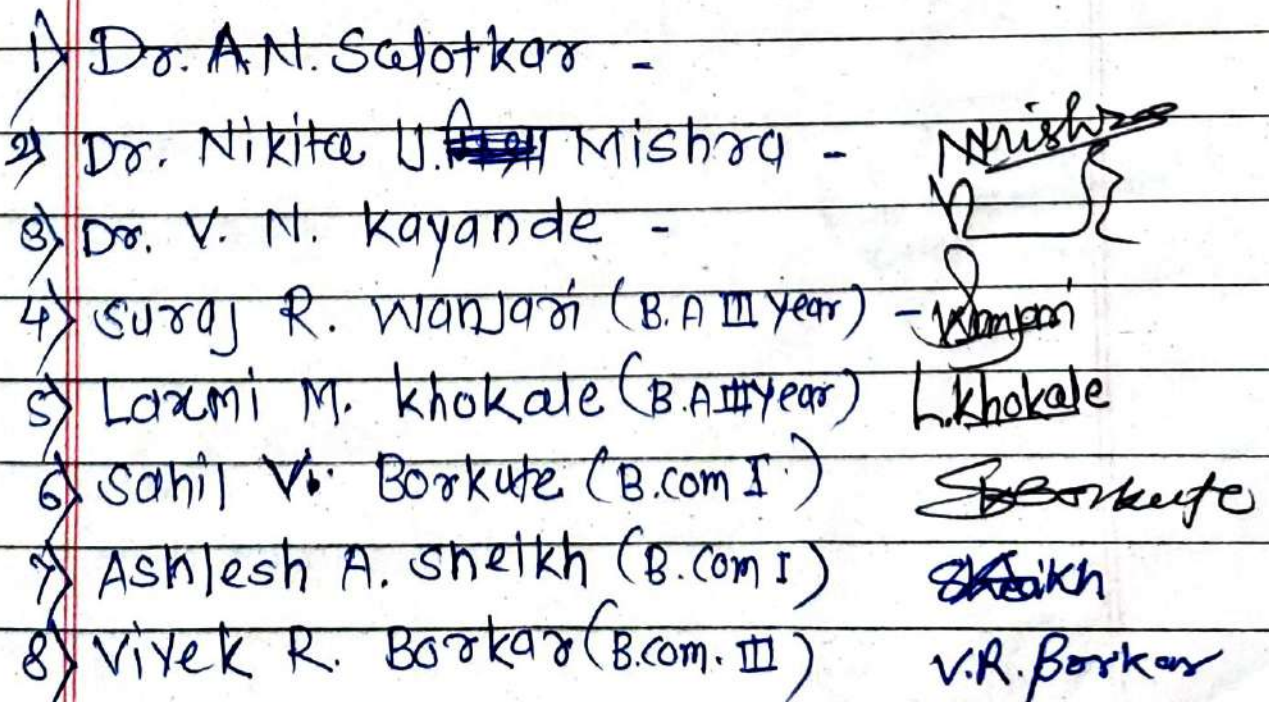 1) Dr. A.N. Salotkar -
2) Dr. Nikita U. Mishra - NMishra
3) Dr. V. N. Kayande -
4) Suraj R. Wanjari (B.A III Year) - Wanjari
5) Laxmi M. Khokale (B.A III Year) L.Khokale
6) Sahil V. Borkute (B.com I) SBorkute
7) Ashlesh A. Sheikh (B.com I) Shaikh
8) Vivek R. Borkar (B.com. III) V.R. Borkar